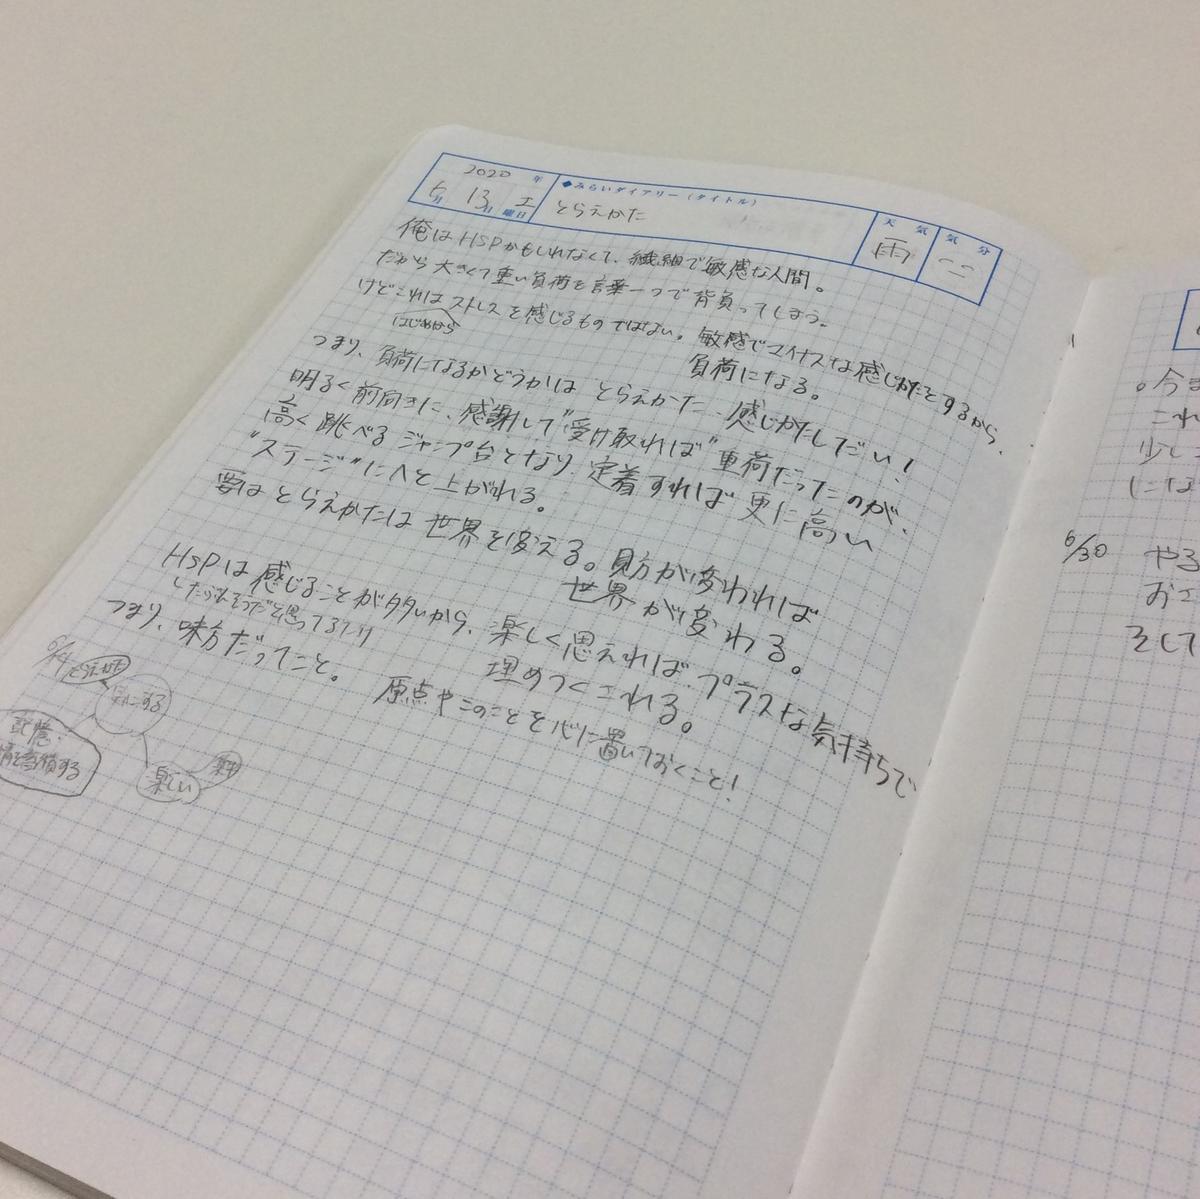 2020 年
6月 13日 土曜日
◆みらいダイアリー(タイトル)
とらえかた
天気
雨
気分
俺はHSPかもしれなくて、繊細で敏感な人間。
だから大きくて重い負荷を言葉一つで背負ってしまう。
けどこれはストレスを感じるものではない。敏感でマイナスな感じかたをするから、
はじめから
負荷になる。
つまり、負荷になるかどうかは とらえかた、感じかたしだい!
明るく前向きに、感謝して"受け取れば"重荷だったのが、
高く跳べるジャンプ台となり、定着すれば更に高い
"ステージ"にへと上がれる。
要はとらえかたは世界を変える。見方が変われば
世界が変わる。
HSPは感じることが多いから、楽しく思えれば、プラスな気持ちで
埋めつくされる。
つまり、味方だってこと。
原点やこのことを心に置いておくこと!
6/14
とらえかた
楽しい
する
今ま
これ
少し
にな
6/30 やる
おこ
そして